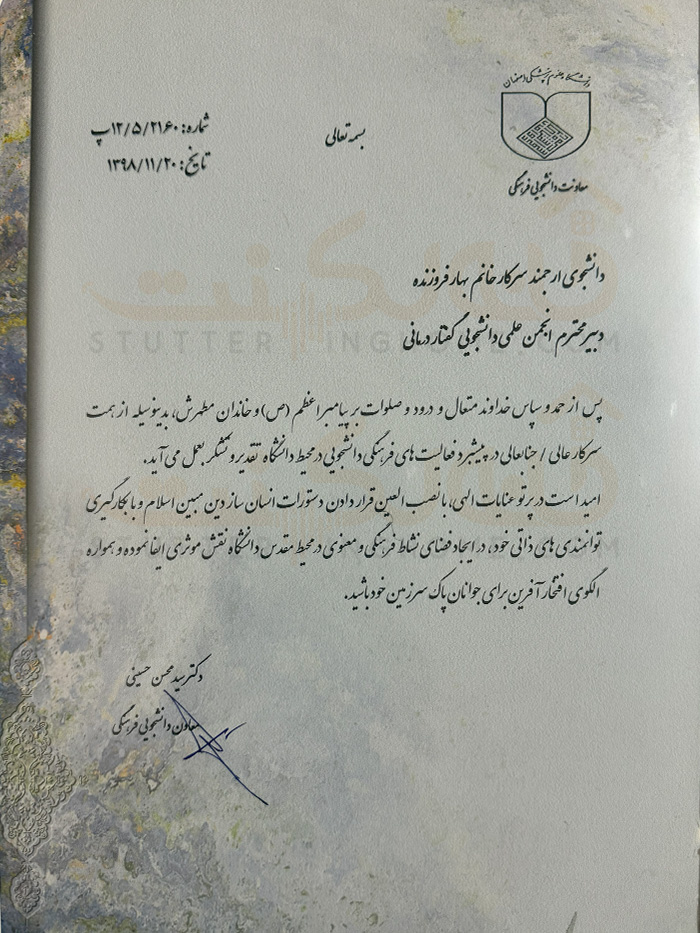 دانشگاه علوم پزشکی اصفهان
معاونت دانشجویی فرهنگی
بسمه تعالی
شماره: ۱۲/۵/۲۱۶۰پ
تاریخ: ۱۳۹۸/۱۱/۲۰
دانشجوی ارجمند سرکار خانم بهار فروزنده
دبیر محترم انجمن علمی دانشجویی گفتار درمانی
پس از حمد و سپاس خداوند متعال و درود و صلوات بر پیامبر اعظم (ص) و خاندان مطهرش، بدینوسیله از همت
سرکار عالی / جنابعالی در پیشبرد فعالیت های فرهنگی دانشجویی در محیط دانشگاه تقدیر و تشکر بعمل می آید.
امید است در پرتو عنایات الهی، با نصب العین قرار دادن دستورات انسان ساز دین مبین اسلام و با بکارگیری
توانمندی های ذاتی خود، در ایجاد فضای نشاط فرهنگی و معنوی در محیط مقدس دانشگاه نقش موثری ایفا نموده و همواره
الگوی افتخار آفرین برای جوانان پاک سرزمین خود باشید.
دکتر سید محسن حسینی
معاون دانشجویی فرهنگی
STUTTER